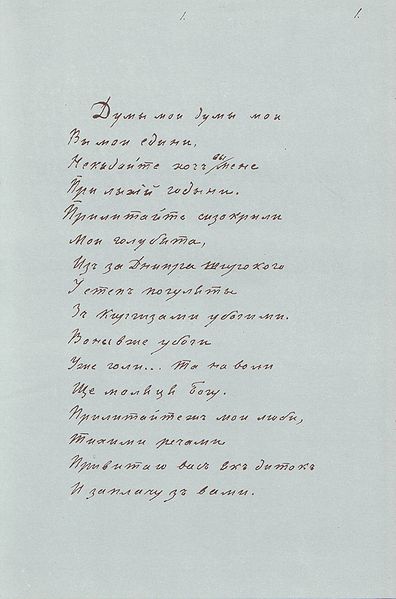 1.
1.
Думы мои думы мои
Вы мои едини,
Некыдайте хочъ вы мене
При лыхій годыни.
Прилитайте сизокрили
Мои голубята,
Изъ за Днипра широкого
У степъ погуляты
Зъ Киргизами убогими.
Вонывже убоги
Уже голи... та наволи
Ще моляця Богу.
Прилитайтежъ мои люби,
Тихими речами
Привитаю васъ якъ дитокъ
И заплачу зъ вами.